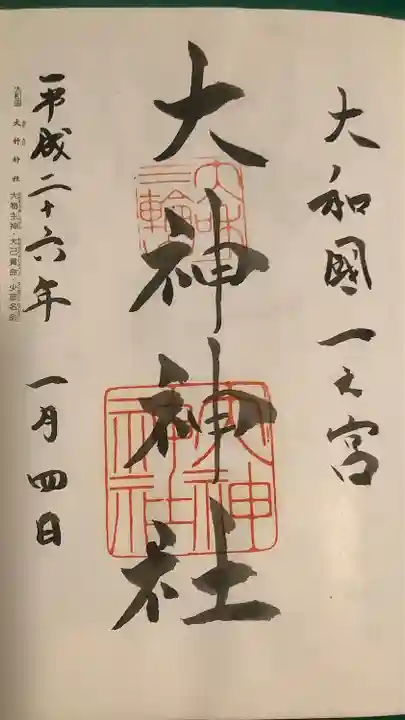 大和國一之宮
大神神社
大和国
三輪山
大神神社
平成二十六年 一月四日
大神神社 大物主神・大己貴命・少彦名命